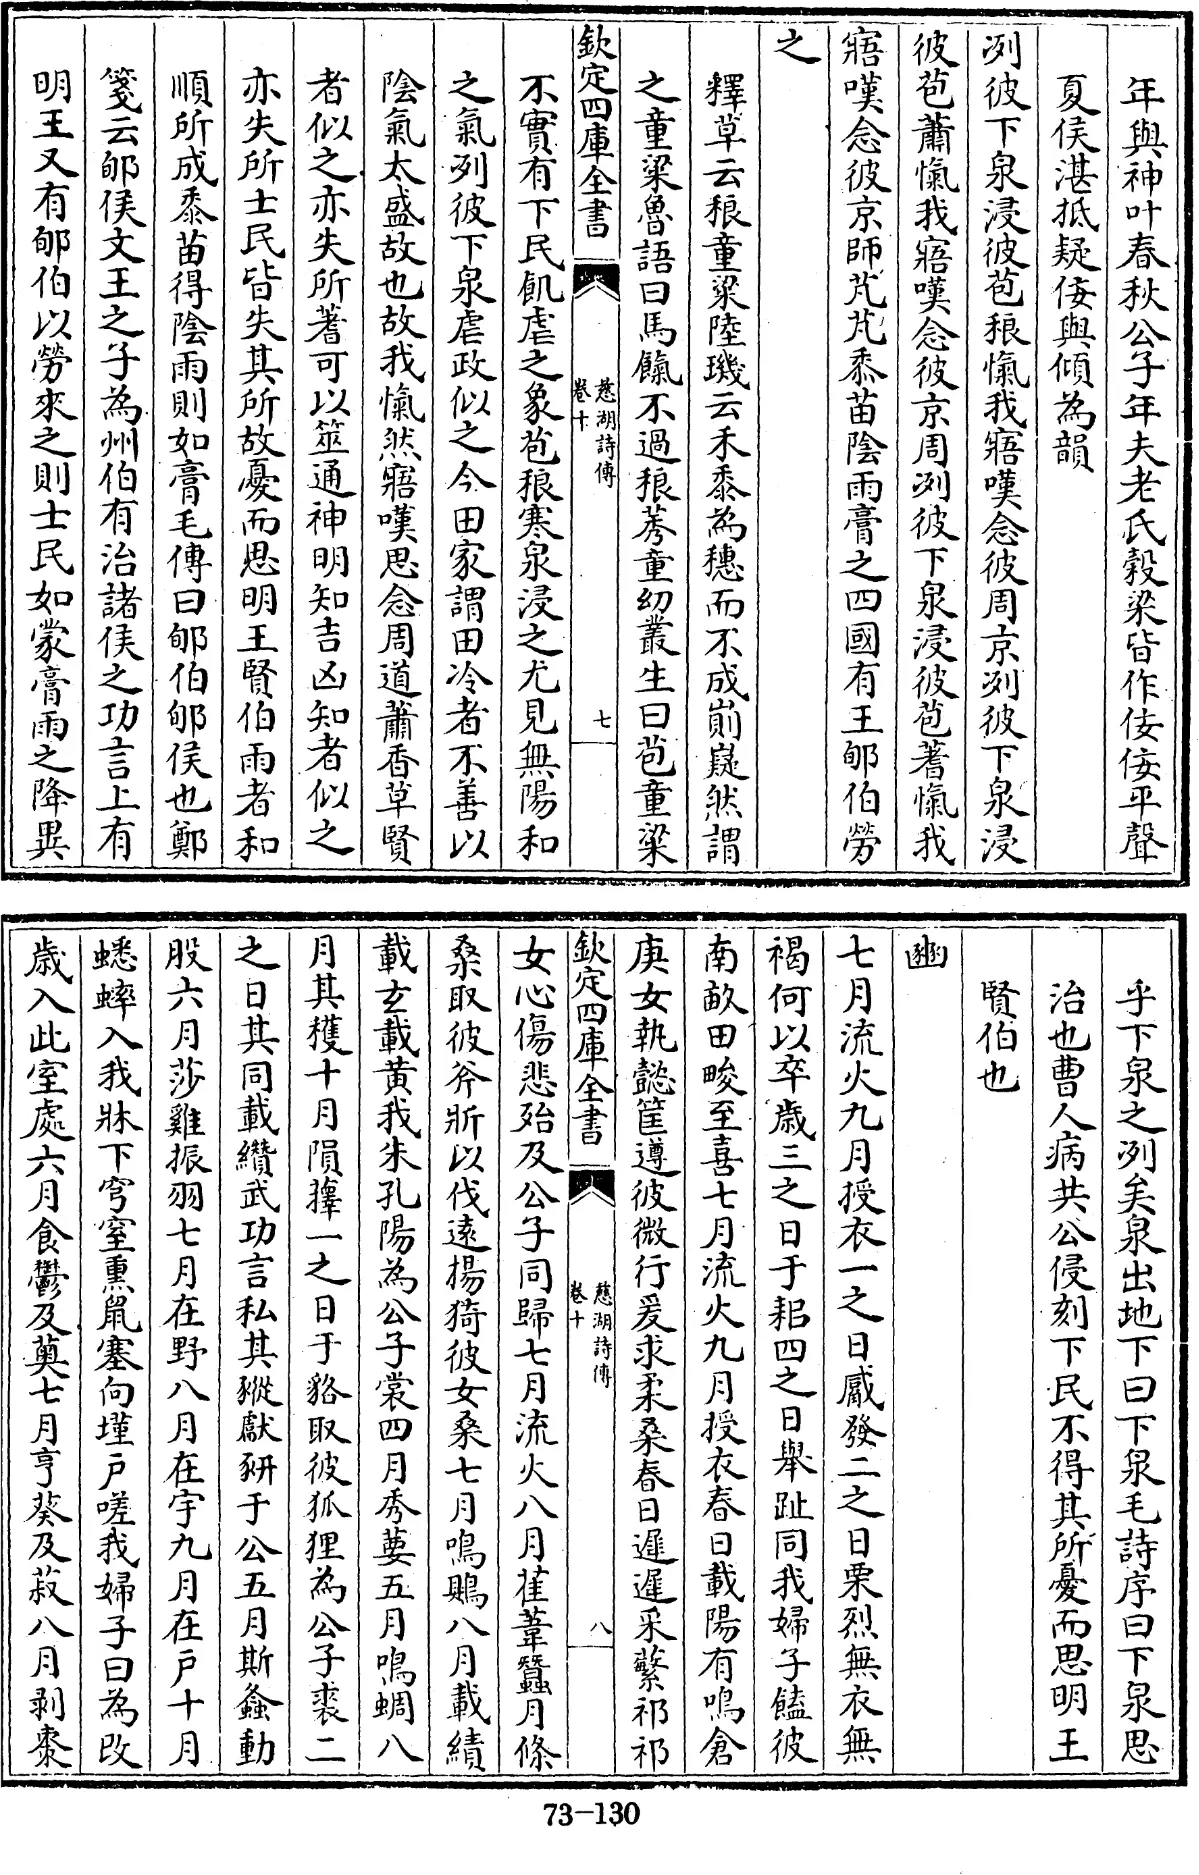 年與神叶春秋公子年夫老氏榖梁皆作佞佞平聲
夏侯湛抵疑佞與傾為韻
冽彼下泉浸彼苞稂愾我寤嘆念彼周京冽彼下泉浸
彼苞蕭愾我寤嘆念彼京周冽彼下泉浸彼苞蓍愾我
寤嘆念彼京師芃芃黍苗陰雨膏之四國有王郇伯勞
之
釋草云稂童粱陸璣云禾黍為穗而不成崱嶷然謂
之童粱魯語曰馬餼不過稂莠童幼叢生曰苞童粱
欽定四庫全書
慈湖詩傳
卷十
七
不實有下民飢虐之象苞稂寒泉浸之尤見無陽和
之氣列彼下泉虐政似之今田家謂田冷者不善以
陰氣太盛故也故我愾然寤嘆思念周道蕭香草賢
者似之亦失所蓍可以筮通神明知吉凶知者似之
亦失所士民皆失其所故憂而思明王賢伯雨者和
順所成黍苗得陰雨則如膏毛傳曰郇伯郇侯也鄭
箋云郇侯文王之子為州伯有治諸侯之功言上有
明王又有郇伯以勞來之則士民如蒙膏雨之降異
乎下泉之冽矣泉出地下曰下泉毛詩序曰下泉思
治也曹人病共公侵刻下民不得其所憂而思明王
賢伯也
豳
七月流火九月授衣一之日觱發二之日栗烈無衣無
褐何以卒歲三之日于耜四之日舉趾同我婦子饁彼
南畝田畯至喜七月流火九月授衣春日載陽有鳴倉
庚女執懿筐遵彼微行爰求柔桑春日遲遲采蘩祁祁
欽定四庫全書
慈湖詩傳
卷十
八
女心傷悲殆及公子同歸七月流火八月萑葦蠶月條
桑取彼斧斨以伐遠揚猗彼女桑七月鳴鵙八月載績
載玄載黃我朱孔陽為公子裳四月秀葽五月鳴蜩八
月其穫十月隕蘀一之日于貉取彼狐狸為公子裘二
之日其同載纘武功言私其豵獻豜于公五月斯螽動
股六月莎雞振羽七月在野八月在宇九月在戶十月
蟋蟀入我牀下穹窒熏鼠塞向墐戶嗟我婦子曰為改
歲入此室處六月食鬱及薁七月亨葵及菽八月剥棗
73-130